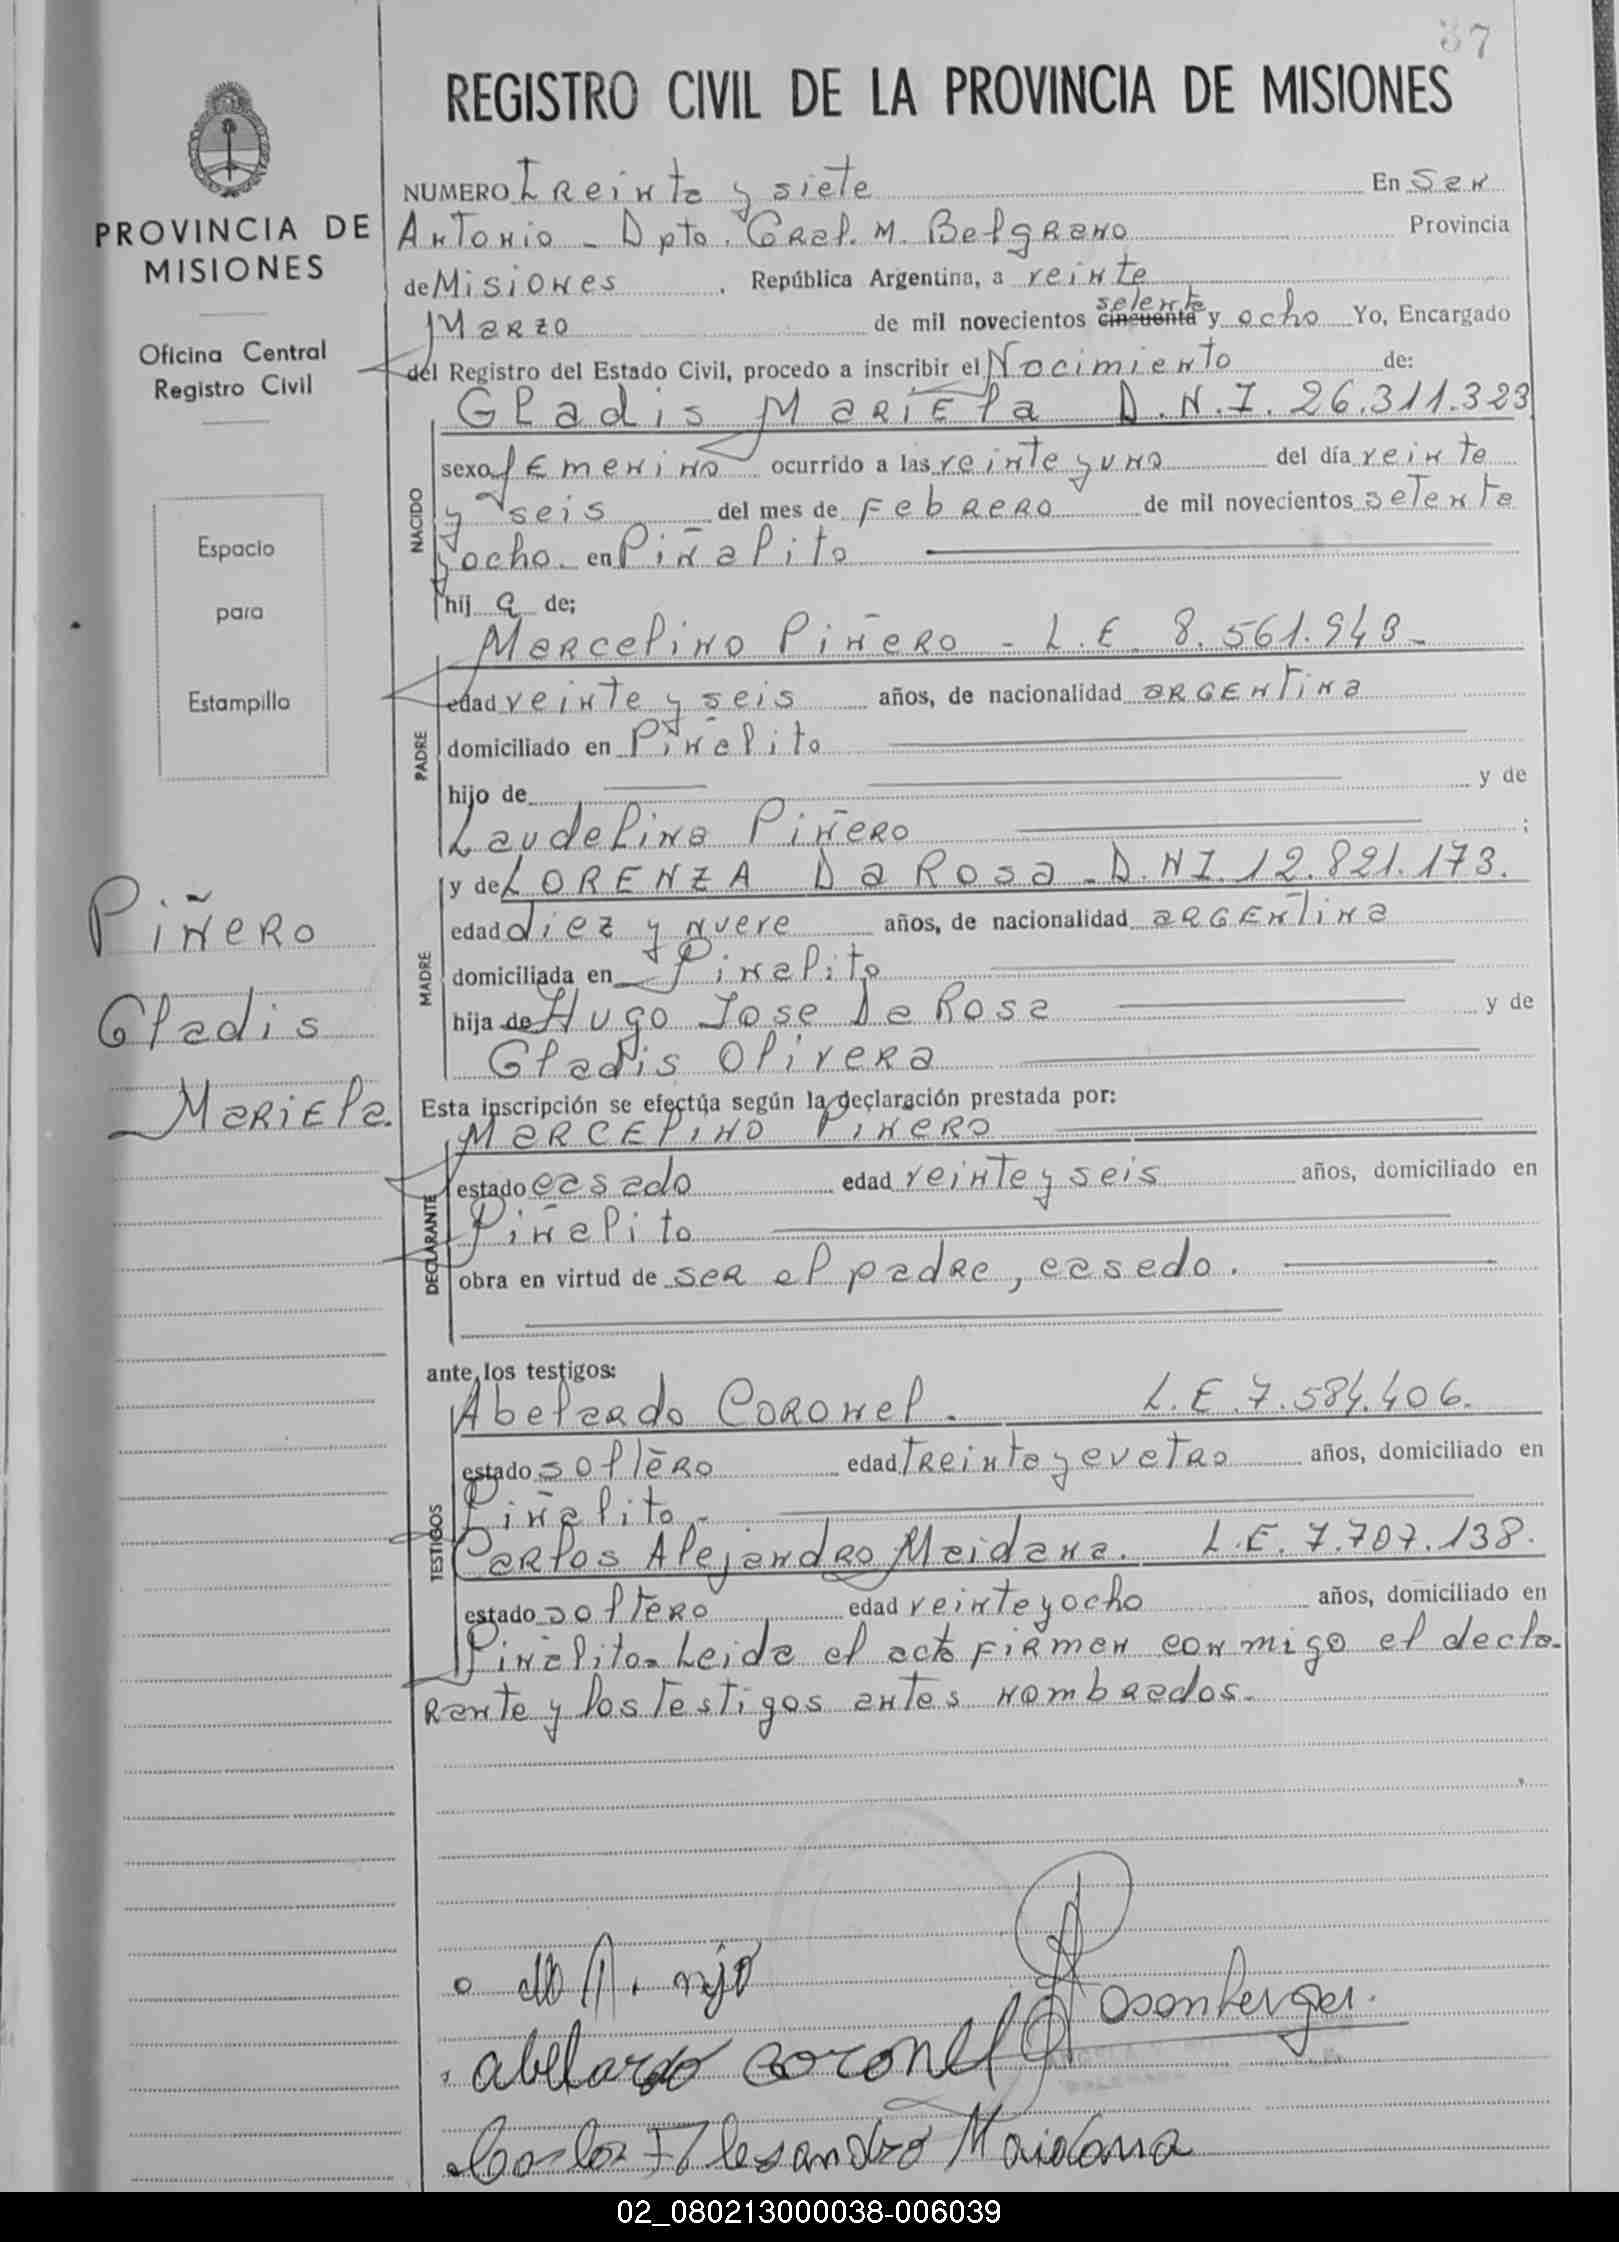 37
REGISTRO CIVIL DE LA PROVINCIA DE MISIONES
PROVINCIA DE
MISIONES
Oficina Central
Registro Civil
Espacio
para
Estampilla
Piñero
Gladis
Mariela.
NUMERO Treinta y siete En San
Antonio - Dpto. Gral. M. Belgrano Provincia
de Misiones, República Argentina, a veinte
Marzo de mil novecientos cincuenta setenta y ocho Yo, Encargado
del Registro del Estado Civil, procedo a inscribir el Nacimiento de:
NACIDO
Gladis Mariela D.N.I. 26.311.323
sexo femenino ocurrido a las veinte y una del día veinte
y seis del mes de Febrero de mil novecientos setenta
y ocho. en Piñalito
hij a de;
PADRE
Marcelino Piñero - L.E. 8.561.943-
edad veinte y seis años, de nacionalidad argentina
domiciliado en Piñalito
hijo de y de
Laudelina Piñero ;
MADRE
y de LORENZA Da Rosa - D.NI. 12.821.173.
edad diez y nueve años, de nacionalidad argentina
domiciliada en Piñalito
hija de Hugo Jose Da Rosa y de
Gladis Olivera
Esta inscripción se efectúa según la declaración prestada por:
DECLARANTE
Marcelino Piñero
estado casado edad veinte y seis años, domiciliado en
Piñalito
obra en virtud de ser el padre, casado.
ante los testigos:
TESTIGOS
Abelardo Coronel. L.E. 7.584.406.
estado soltero edad treinta y cuatro años, domiciliado en
Piñalito.-
Carlos Alejandro Maidana. L.E. 7.707.138.
estado soltero edad veinte y ocho años, domiciliado en
Piñalito- Leida el acta firman conmigo el decla-
rante y los testigos antes nombrados.-
Rosenberger.
abelardo coronel
Carlos Alesandro Maidana
02_080213000038-006039